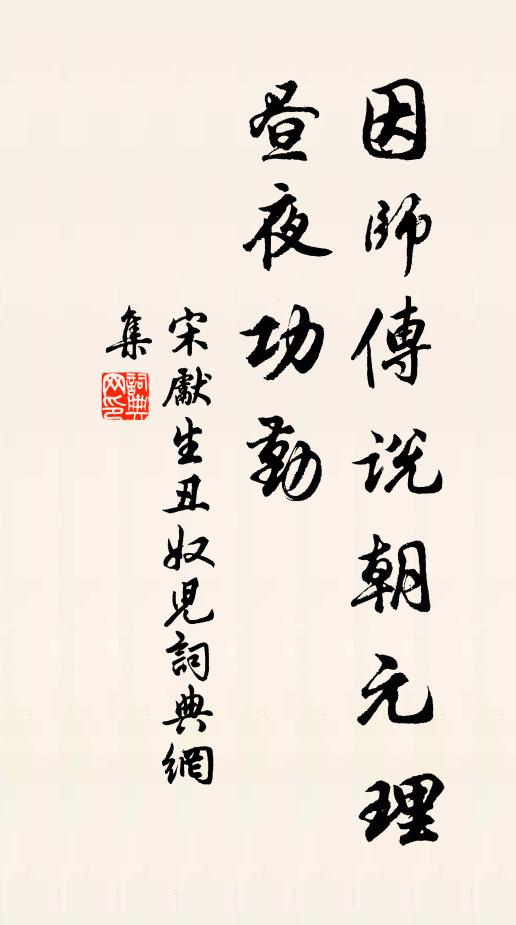 因師傳説朝元理
昼夜功勤
宋獻生丑奴兒詞典網
集
詞典
网印